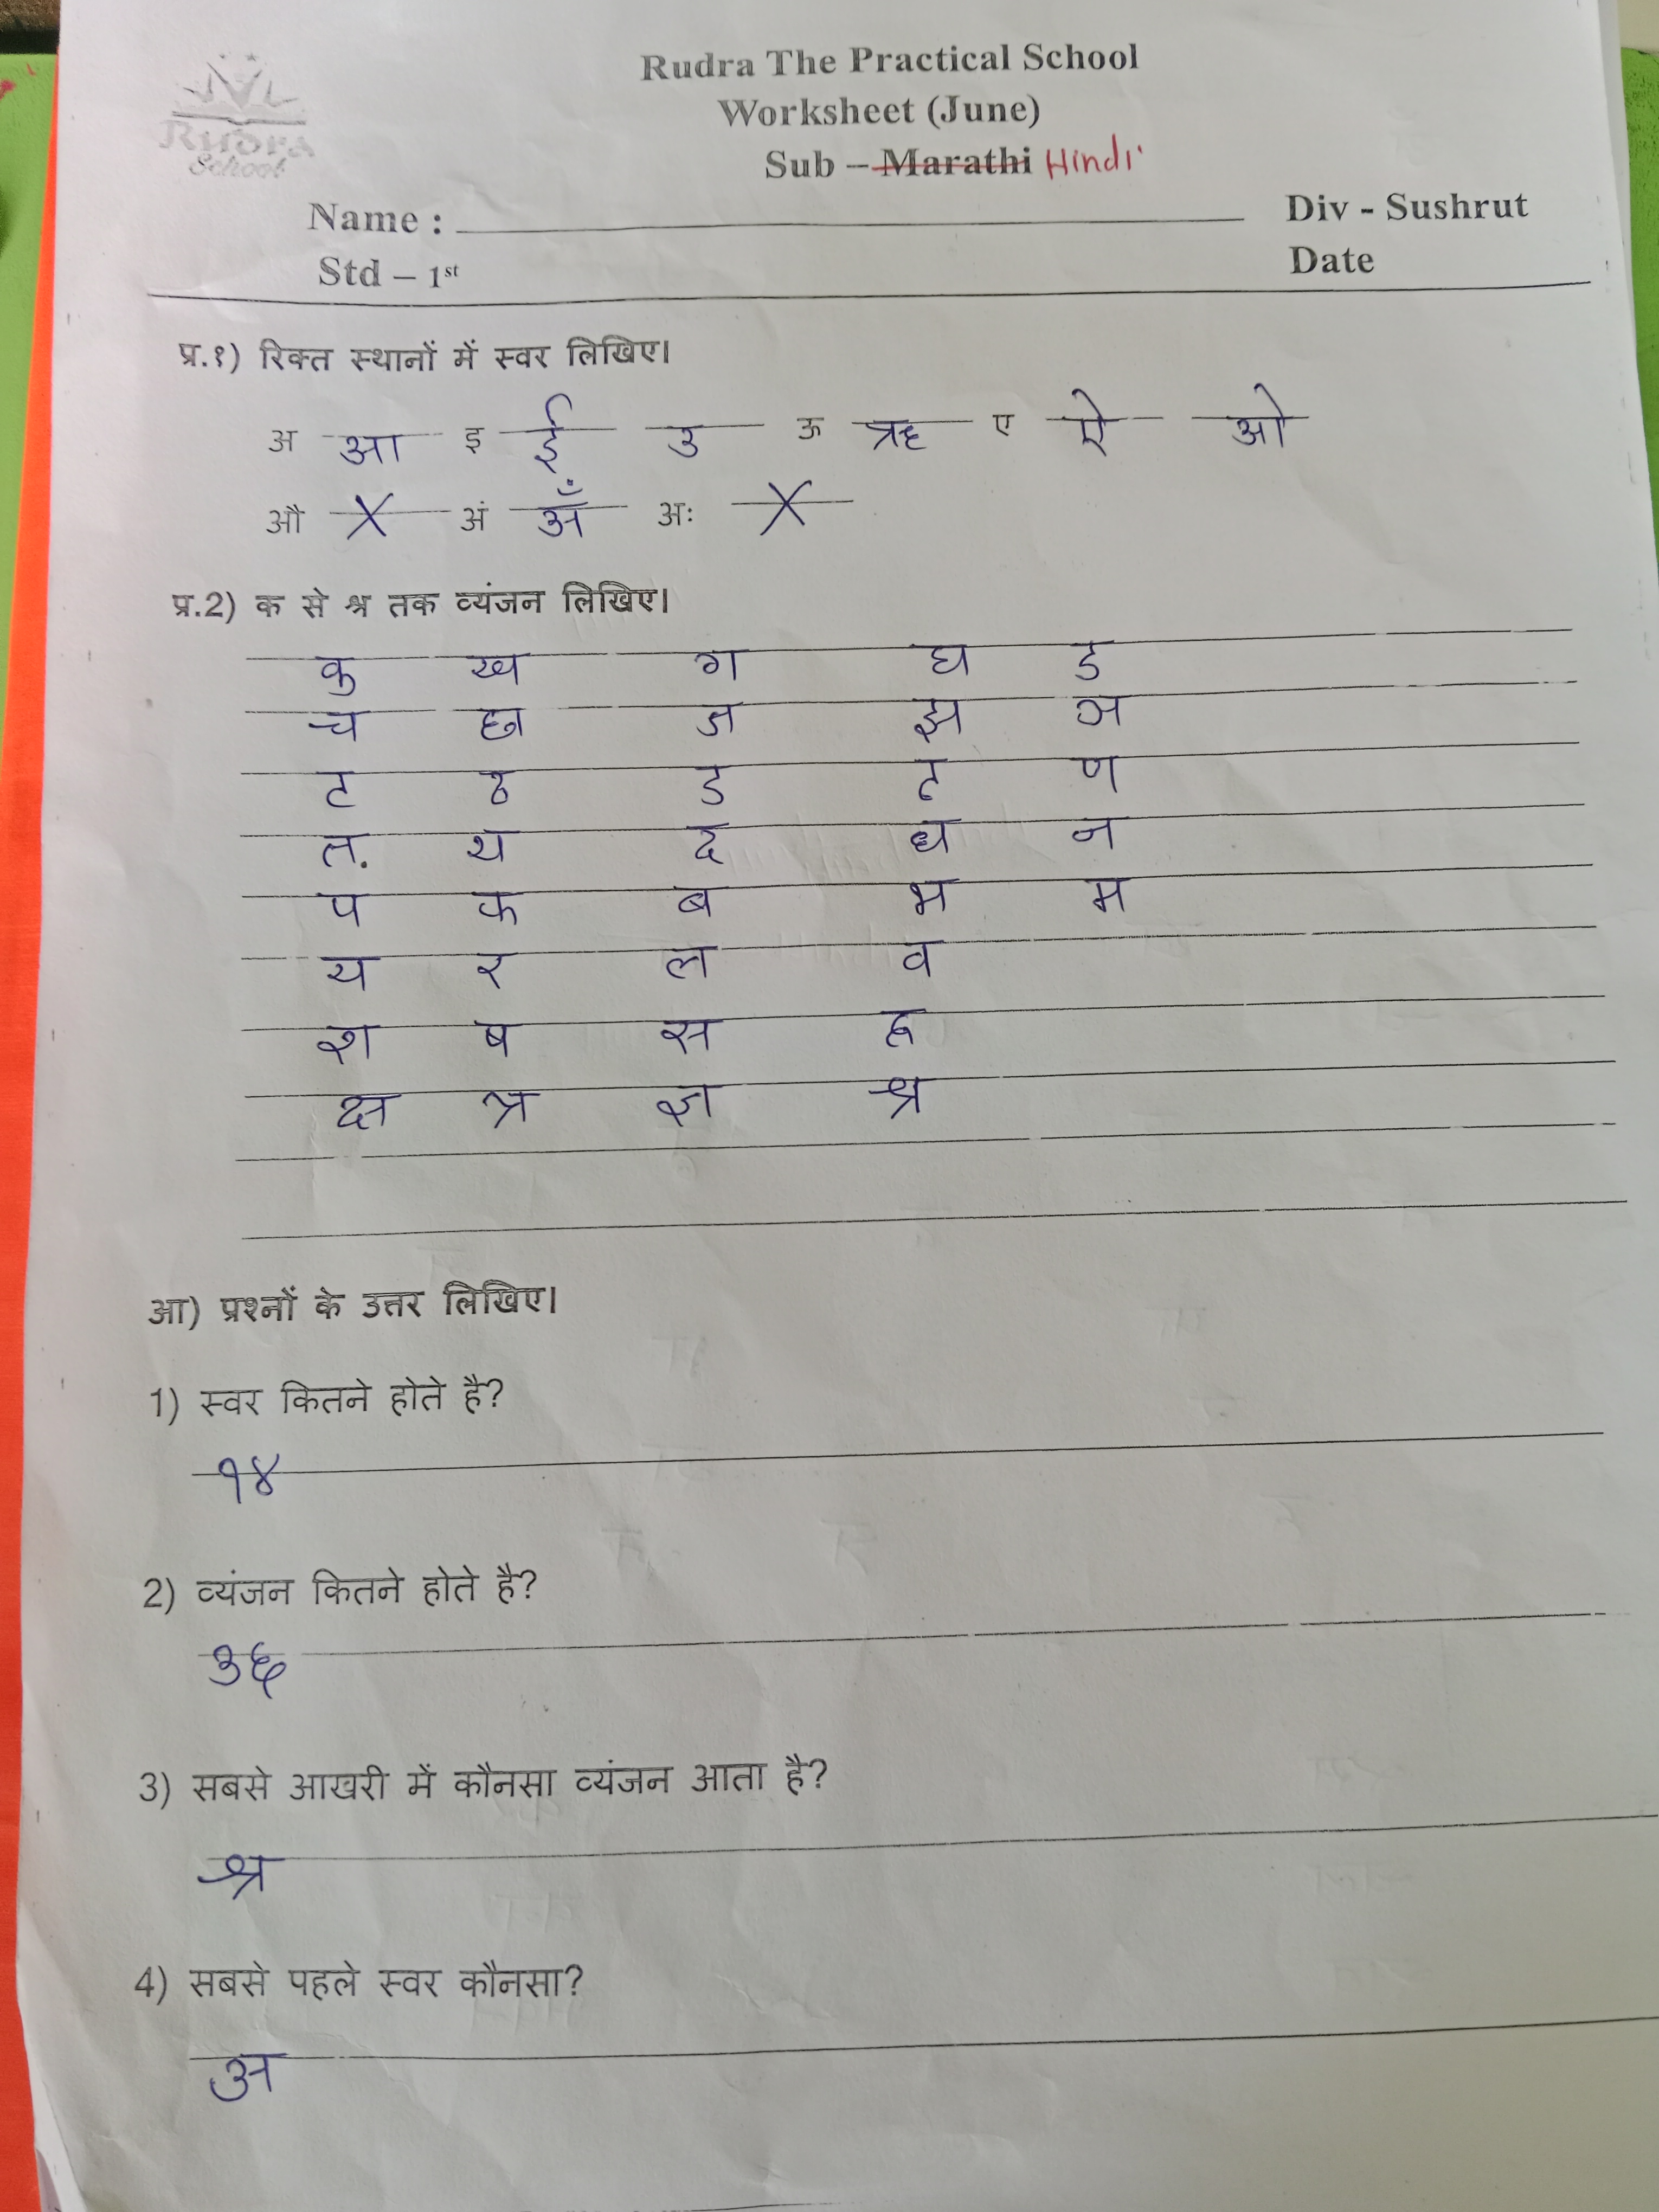 Rudra School
Rudra The Practical School
Worksheet (June)
Sub – Marathi Hindi
Name : Div - Sushrut
Std – 1st Date
प्र.१) रिक्त स्थानों में स्वर लिखिए।
अ आ इ ई उ ऊ ऋ ए ऐ ओ
औ X अं अँ अः X
प्र.2) क से श्र तक व्यंजन लिखिए।
क ख ग घ ड
च छ ज झ ञ
ट ठ ड ढ ण
त. थ द ध न
प फ ब भ म
य र ल व
श ष स ह
क्ष त्र ज्ञ श्र
आ) प्रश्नों के उत्तर लिखिए।
1) स्वर कितने होते है?
१४
2) व्यंजन कितने होते है?
३६
3) सबसे आखरी में कौनसा व्यंजन आता है?
श्र
4) सबसे पहले स्वर कौनसा?
अ